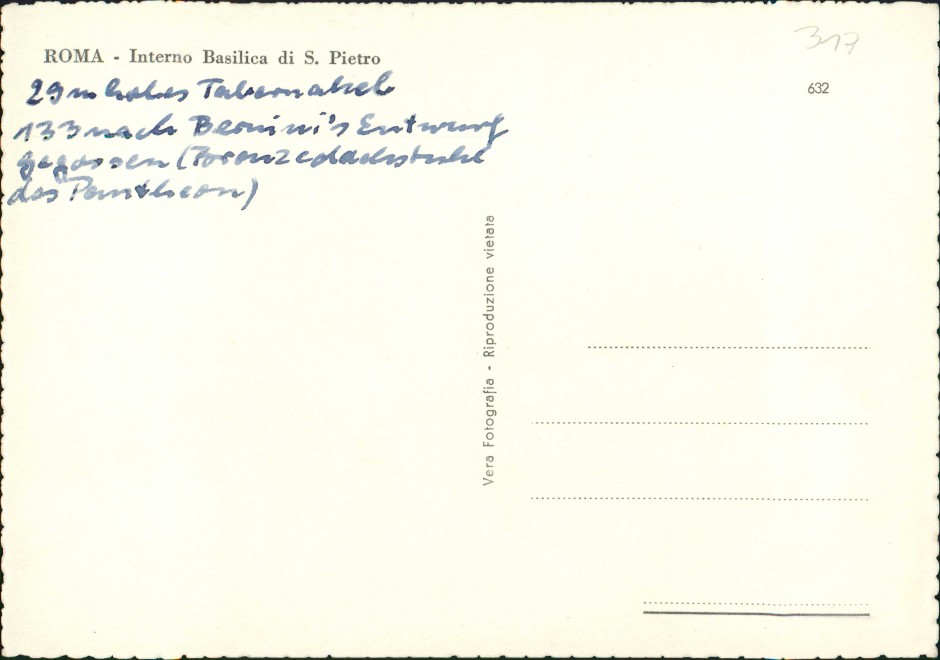 ROMA - Interno Basilica di S. Pietro
29 m hohes Tabernakel
133 nach Bernini's Entwurf
gegossen (Bronzedachstuhl
des Pantheon)
317
632
Vera Fotografia - Riproduzione vietata